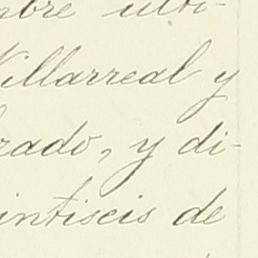 bre ulti-
Villarreal y
rado, y di-
intiseis de